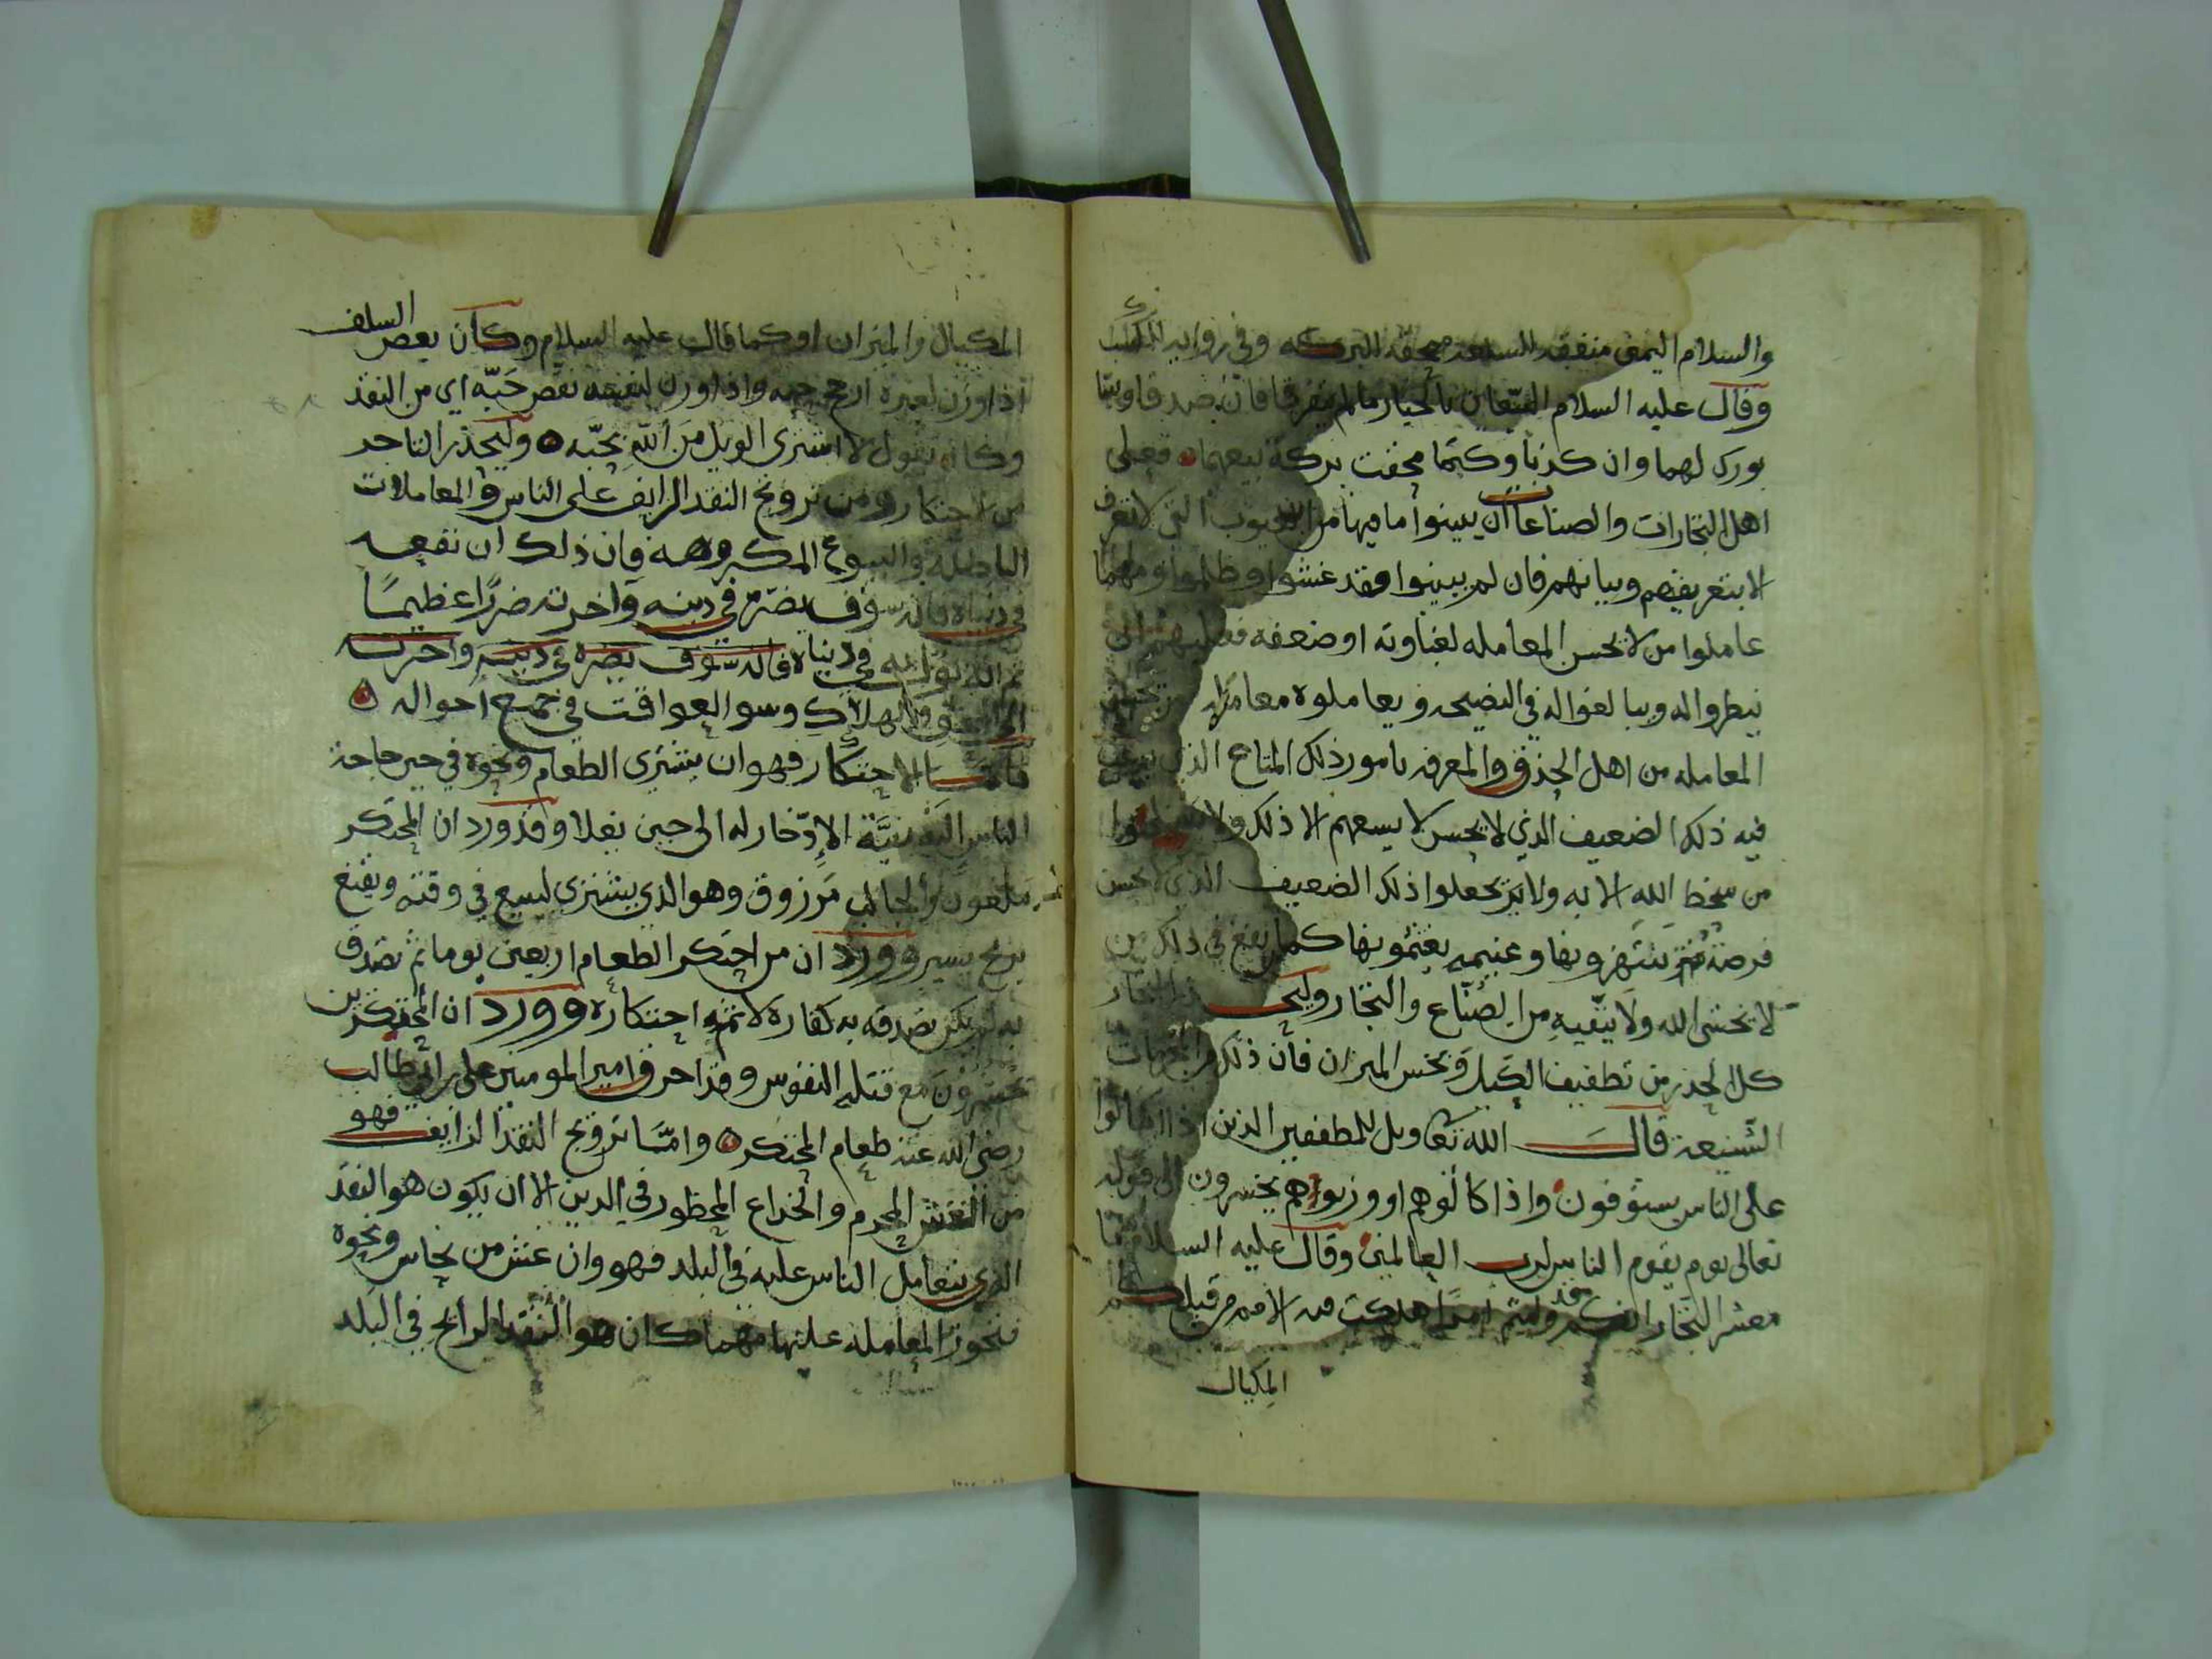 والسلام اليمين منفقه للسلعه ممحقه للبركه وفي روايه للكسب
وقال عليه السلام البيعان بالخيار مالم يتفرقا فان صدقا وبينا
بورك لهما وان كذبا وكتما محقت بركة بيعهما فعلى
اهل التجارات والصناعات ان يبينوا ما فيها من العيوب التي لا تعرف
الا بتعريفهم وبيانهم فان لم يبينوا فقد غشوا وظلموا ومهما
عاملوا من لا يحسن المعامله لغباوته او ضعفه فعليهم ان
ينظروا له ويبالغوا له في النصيحه ويعاملوه معاملة من يحسن
المعامله من اهل الحذق والمعرفه بامور ذلك المتاع الذي يرغب
فيه ذلك الضعيف الذي لا يحسن لا يسعهم الا ذلك ولا
من سخط الله الا به ولا يجعلوا ذلك الضعيف الذي لا يحسن
فرصة ينتهزونها وغنيمه يغتنمونها كما يقع في ذلك من
لا يخشى الله ولا يتقيه من الصناع والتجار وليحذر التجار
كل الحذر من تطفيف الكيل وبخس الميزان فان ذلك من المحرمات
الشنيعه قال الله تعا ويل للمطففين الذين اذا اكتالوا
على الناس يستوفون واذا كالوهم او وزنوهم يخسرون الى قوله
تعالى يوم يقوم الناس لرب العالمين وقال عليه السلام يا
معشر التجار انكم قد وليتم امرا هلكت فيه الامم من قبلكم
المكيال
المكيال والميزان او كما قال عليه السلام وكان بعض السلف
اذا وزن لغيره ارجح حبه واذا وزن لنفسه نقص حبه اي من النقد
وكان يقول لا اشتري الويل من الله بحبه وليحذر التاجر
من الاحتكار ومن ترويج النقد الزايف على الناس والمعاملات
الباطله والبيوع المكروهه فان ذلك ان نفعه
في دنياه فانه سوف يضره في دينه وآخرته ضررا عظيما
ثم انه في دنياه فانه سوف يضره في دينه واخرته
الى والهلاك وسو العواقب في جميع احواله
فامـا الاحتكار فهو ان يشتري الطعام ونحوه في حين حاجة
الناس اليه بنية الادخار له الى حين يغلا وقد ورد ان المحتكر
ملعون والجالب مرزوق وهو الذي يشتري ليبيع في وقته ويقنع
بربح يسير وورد ان من احتكر الطعام اربعين يوما ثم تصدق
به لم يكن تصدقه به كفارة لاثم احتكاره وورد ان المحتكرين
يحشرون مع قتلة النفوس وقد احرق امير المومنين علي ابن ابي طالب
رضي الله عنه طعام المحتكر وامـا ترويج النقد الزايف فهو
من الغش المحرم والخداع المحظور في الدين الا ان يكون هو النقد
الذي يتعامل الناس عليه في البلد فهو وان غش من نحاس ونحوه
فتجوز المعامله عليها مهما كان هو النقد الرائج في البلد